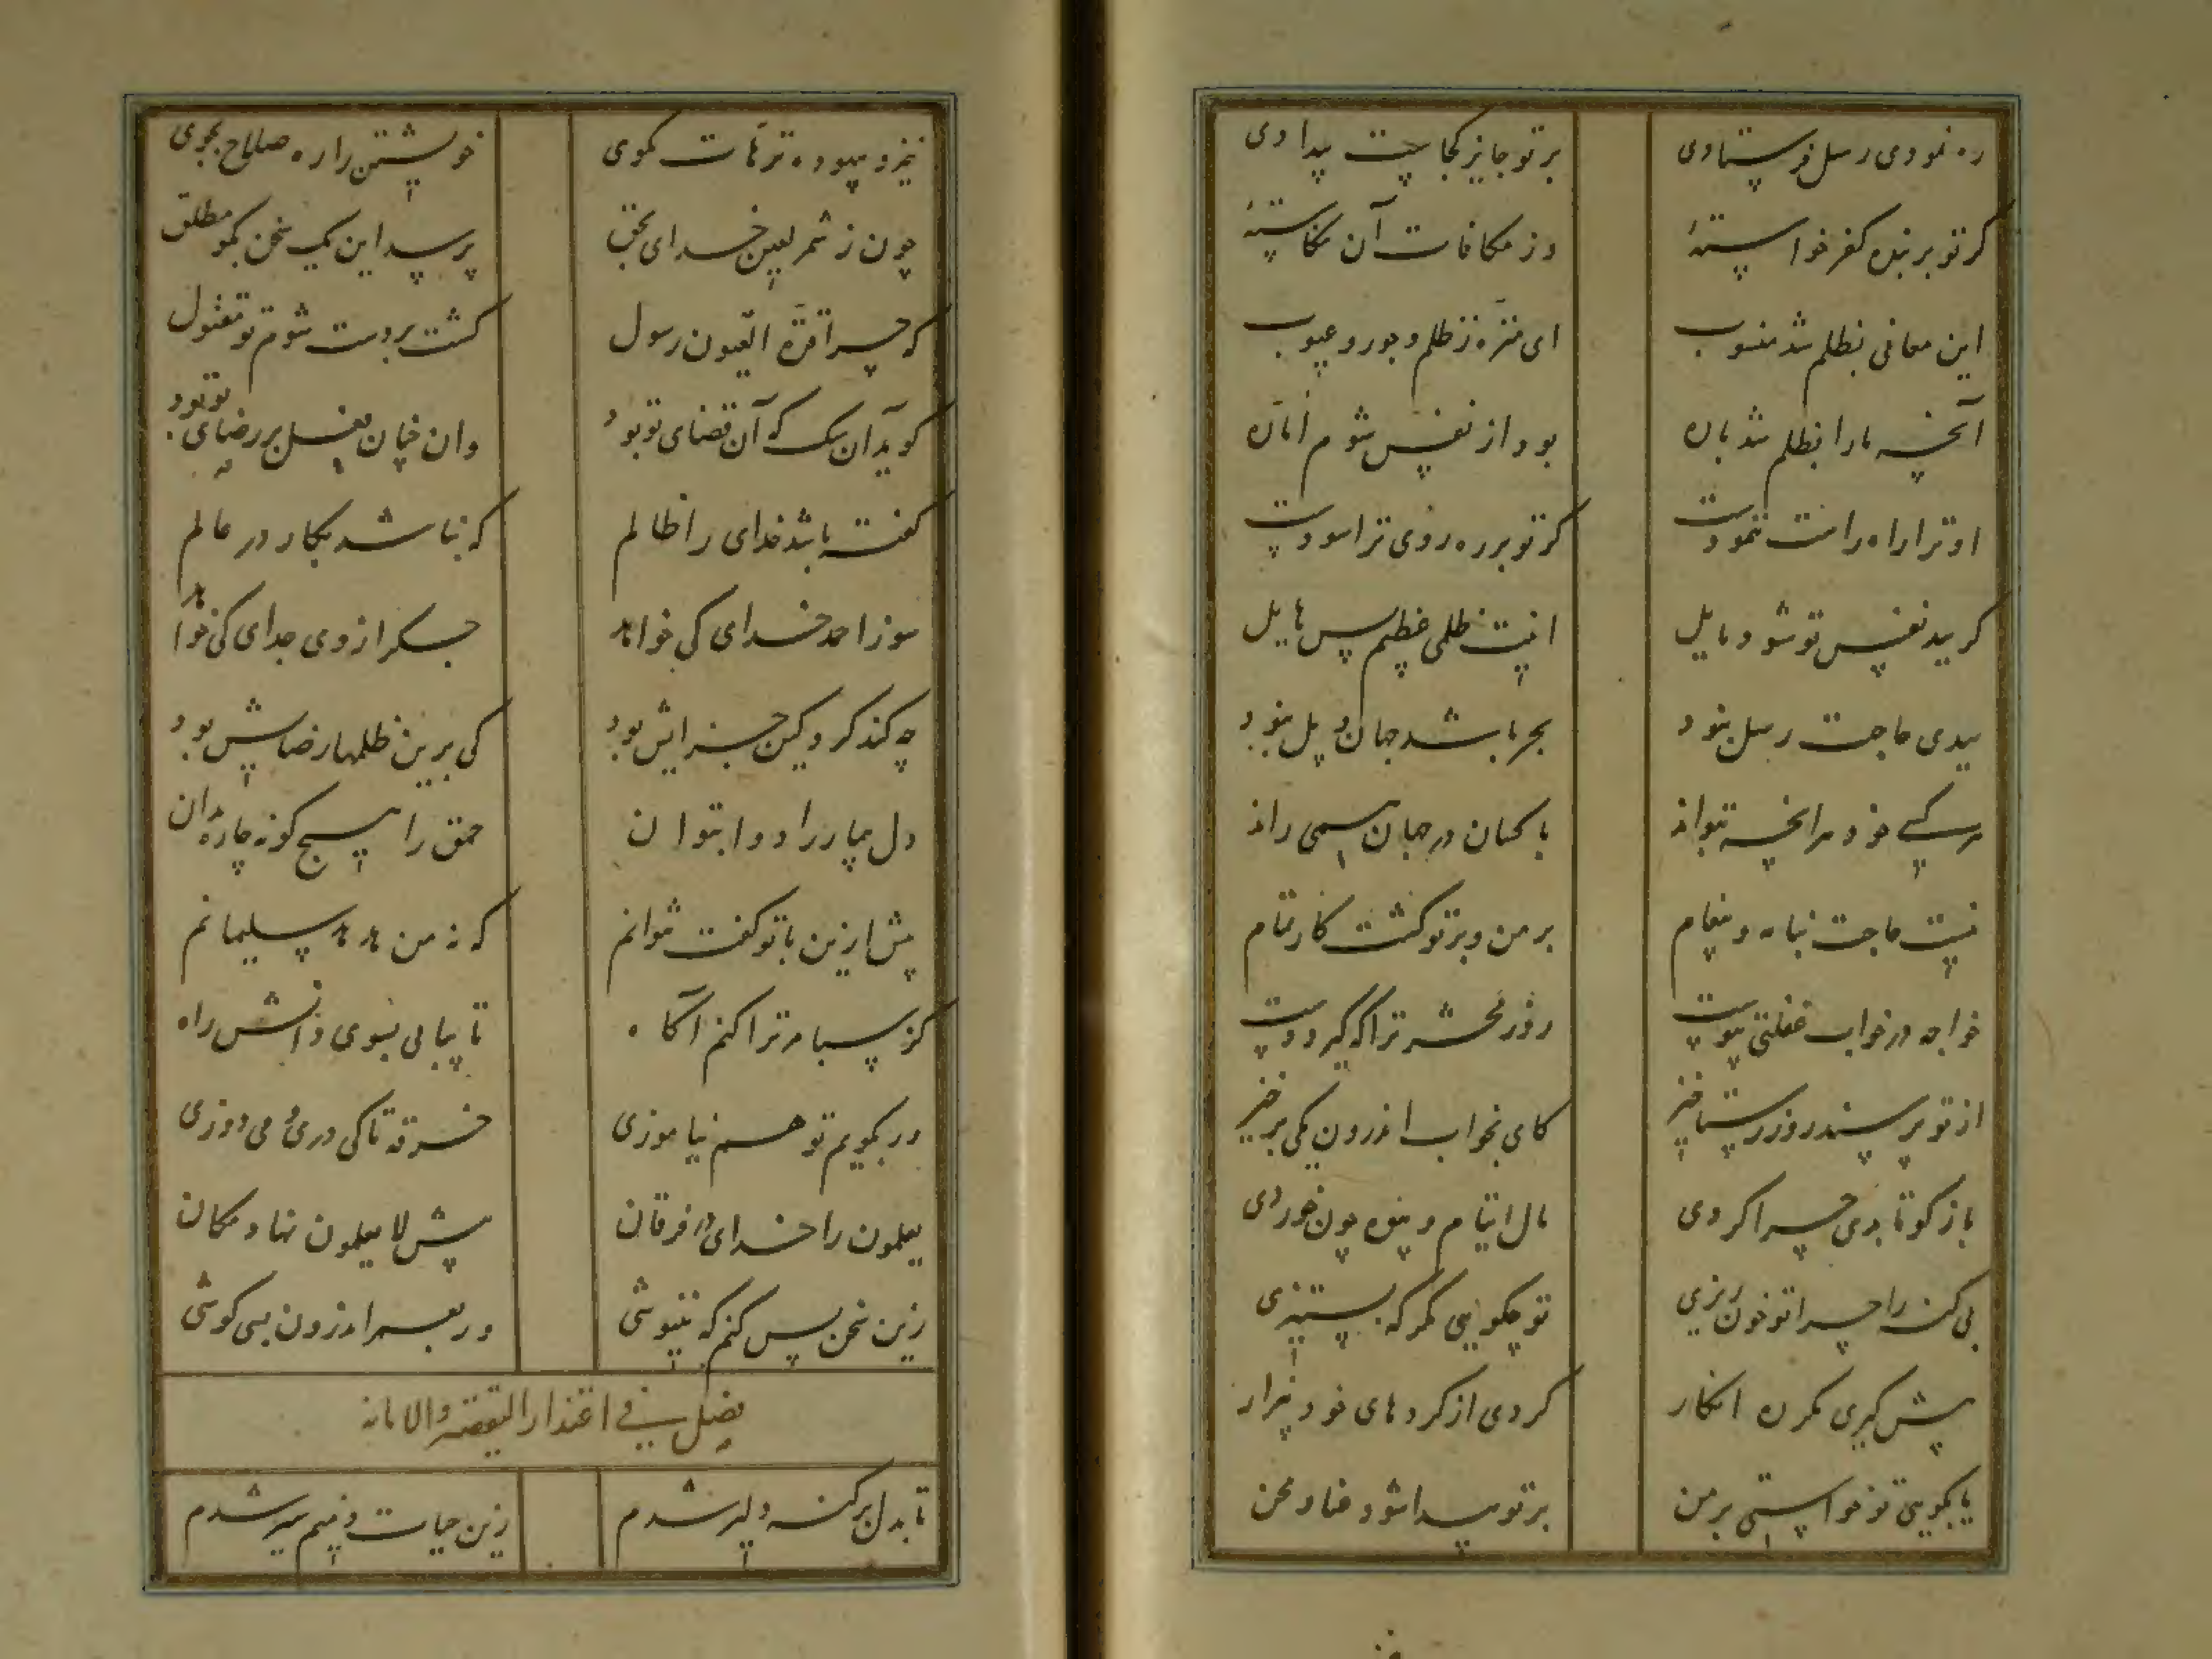 ره نمودی رسل فرستادی بر تو جایز کجاست بیدادی
گر تو بر بنده کفر خواسته وز مکافات آن نکاسته
این معانی بظلم شد منسوب ای منزه ز ظلم و جور و عیوب
آنچه ما را بظلم شد باره بود از نفس شوم اماره
او ترا راه راست ننمودست گر تو بر ره روی ترا سودست
گر ببد نفس تو شود مایل اینت ظلمی عظیم پس هایل
بیدی حاجت رسل نبود بحر باشد جهان و پل نبود
هر کسی خود هر انچه بتواند با کسان در جهان همی راند
نیست حاجت بنامه و پیغام بر من و بر تو گشت کار تمام
خواجه در خواب غفلتی پیوست روز محشر ترا که گیرد دست
از تو پرسند روز رستاخیز کای بخواب اندرون یکی برخیز
باز گو تا بدی چرا کردی مال ایتام و بیوه چون خوردی
بی گنه را چرا تو خون ریزی تو چگویی مگر که بستیزی
پیش گیری مگر ره انکار کردی از کردهای خود بیزار
یا بگویی تو خواستی بر من بر تو پیدا شود فناد محن
نیز و بیهوده ترهات مگوی خویشتن را ره صلاح بجوی
چون ز شمر لعین خدای بحق پرسد این یک سخن بگو مطلق
که چرا قرة العیون رسول گشت بر دست شوم تو مقتول
گوید آن سگ که آن قضای تو بود وان چنان فعل بر رضای تو بود
گفته باشد خدای را ظالم که نباشد بکار در عالم
موز احمد خدای کی خواهد جگر از وی جدای کی خواهد
چه کند گر و کین جزایش بود کی برین ظلمها رضاش بود
دل بیمار را دوا بتوان حمق را هیچ گونه چاره مدان
پیش ازین با تو گفت نتوانم که نه من هدهد سلیمانم
کز سبا مر ترا کنم آگاه تا بیابی بسوی دانش راه
ور بگویم تو هم نیاموزی خرقه تا کی دری و می دوزی
یعلمون را خدای در فرقان پیش لا یعلمون نهاد مکان
زین سخن بس کنم که ننیوشی ور بعمر اندرون بسی کوشی
فصل فی اقتدار الیقظة والامانه
تا بدل بر گنه دلیر شدم زین حیات ذمیم سیر شدم